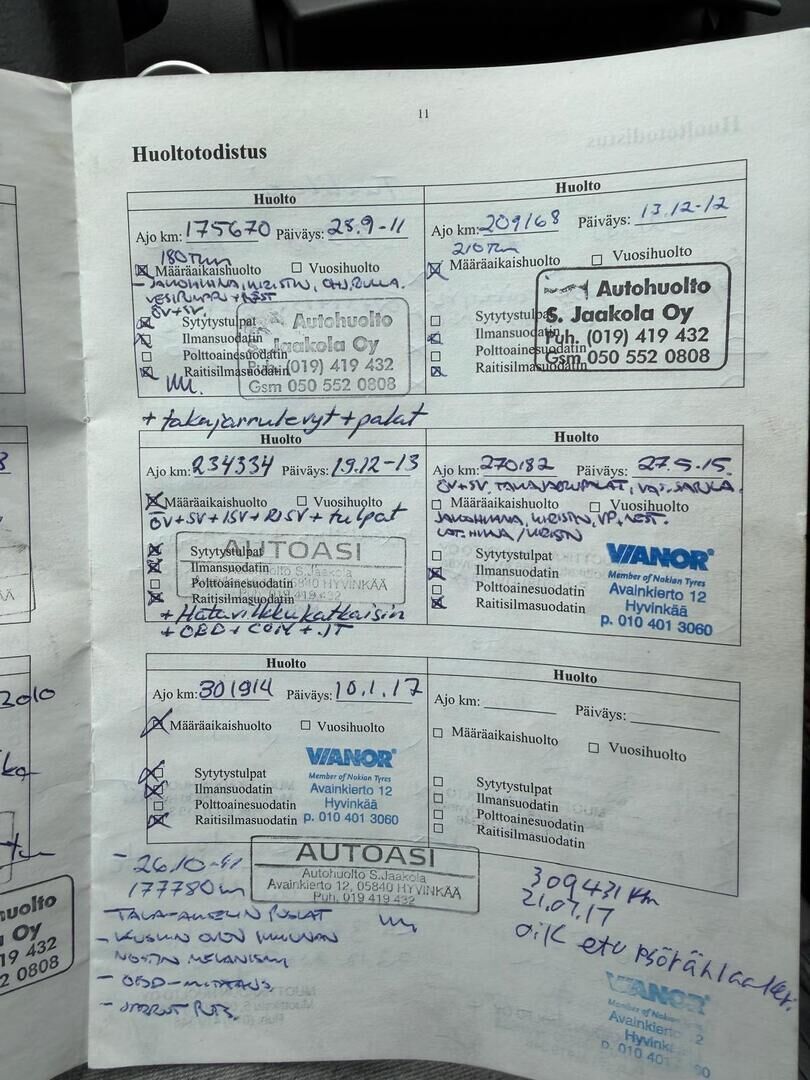 11
Huoltotodistus
Huolto
Ajo km: 175670 Päiväys: 28.9-11
180Tkm
Määräaikaishuolto Vuosihuolto
- JAKOHIHNA, KIRISTIN, OHJ.RULLA.
VESIPUMPPU + NEST
ÖV+SV.
Sytytystulpat
Ilmansuodatin
Polttoainesuodatin
Raitisilmasuodatin
Autohuolto
S. Jaakola Oy
Puh. (019) 419 432
Gsm 050 552 0808
Huolto
Ajo km: 209168 Päiväys: 13.12-12
210Tkm
Määräaikaishuolto Vuosihuolto
Sytytystulpat
Ilmansuodatin
Polttoainesuodatin
Raitisilmasuodatin
Autohuolto
S. Jaakola Oy
Puh. (019) 419 432
Gsm 050 552 0808
+ takajarrulevyt + palat
Huolto
Ajo km: 234334 Päiväys: 19.12-13
Määräaikaishuolto Vuosihuolto
ÖV+SV+ISV+RISV+tulpat
Sytytystulpat
Ilmansuodatin
Polttoainesuodatin
Raitisilmasuodatin
AUTOASI
Autohuolto S.Jaakola
05840 HYVINKÄÄ
Puh. 019 419 432
+ Hätävilkkukatkaisin
+ OBD + COM + JT
Huolto
Ajo km: 270182 Päiväys: 27.5-15.
ÖV+SV, TAKAJARRUPALAT, VAS. SATULA.
Määräaikaishuolto Vuosihuolto
JAKOHIHNA, KIRISTIN, VP, NEST.
LAT.HIHNA / KIRISTIN
Sytytystulpat
Ilmansuodatin
Polttoainesuodatin
Raitisilmasuodatin
VIANOR
Member of Nokian Tyres
Avainkierto 12
Hyvinkää
p. 010 401 3060
Huolto
Ajo km: 301914 Päiväys: 10.1.17
Määräaikaishuolto Vuosihuolto
Sytytystulpat
Ilmansuodatin
Polttoainesuodatin
Raitisilmasuodatin
VIANOR
Member of Nokian Tyres
Avainkierto 12
Hyvinkää
p. 010 401 3060
Huolto
Ajo km: Päiväys:
Määräaikaishuolto Vuosihuolto
Sytytystulpat
Ilmansuodatin
Polttoainesuodatin
Raitisilmasuodatin
AUTOASI
Autohuolto S.Jaakola
Avainkierto 12, 05840 HYVINKÄÄ
Puh. 019 419 432
- 26.10-11
177780km
- TAKA-AKSELIN PUSLAT
- KUSKIN OVEN IKKUNAN
NOSTIN MEKANISMI
- OBD-MITTAUS.
- JARRUT PUTS.
309431 km
21.07.17
oik etu pyöränlaakeri.
VIANOR
Member of Nokian Tyres
Avainkierto 12
Hyvinkää
p. 010 401
2010
uolto
Oy
19 432
2 0808